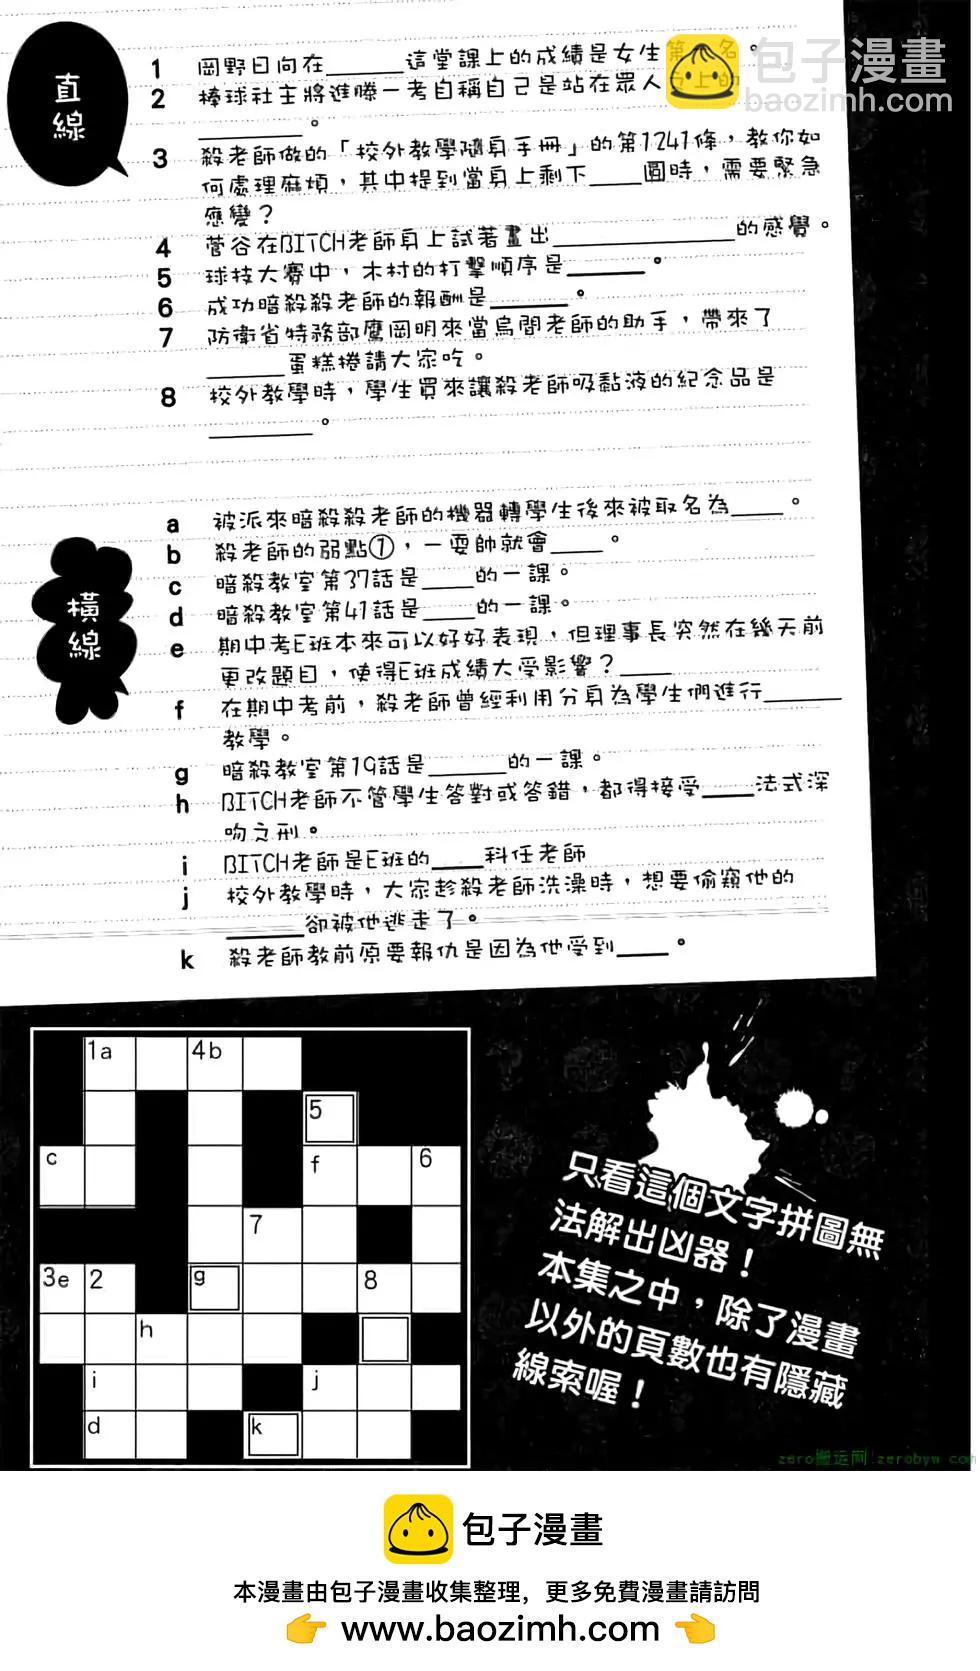 直線
1 岡野日向在______這堂課上的成績是女生第 名。
2 棒球社主將進藤一考自稱自己是站在眾人 上的
________。
3 殺老師做的「校外教學隨身手冊」的第1241條，教你如
何處理麻煩，其中提到當身上剩下____圓時，需要緊急
應變？
4 菅谷在BITCH老師身上試著畫出______________的感覺。
5 球技大賽中，木村的打擊順序是______。
6 成功暗殺殺老師的報酬是______。
7 防衛省特務部鷹岡明來當烏間老師的助手，帶來了
______蛋糕捲請大家吃。
8 校外教學時，學生買來讓殺老師吸黏液的紀念品是
________。
橫線
a 被派來暗殺殺老師的機器轉學生後來被取名為____。
b 殺老師的弱點①，一耍帥就會____。
c 暗殺教室第37話是____的一課。
d 暗殺教室第41話是____的一課。
e 期中考E班本來可以好好表現，但理事長突然在幾天前
更改題目，使得E班成績大受影響？____
f 在期中考前，殺老師曾經利用分身為學生們進行______
教學。
g 暗殺教室第19話是______的一課。
h BITCH老師不管學生答對或答錯，都得接受____法式深
吻之刑。
i BITCH老師是E班的____科任老師
j 校外教學時，大家趁殺老師洗澡時，想要偷窺他的
______卻被他逃走了。
k 殺老師教前原要報仇是因為他受到____。
1a 4b
5
c f 6
7
3e 2 g 8
h
i j
d k
只看這個文字拼圖無
法解出凶器！
本集之中，除了漫畫
以外的頁數也有隱藏
線索喔！
包子漫畫
baozimh.com
zero搬运网:zerobyw com
包子漫畫
本漫畫由包子漫畫收集整理，更多免費漫畫請訪問
👉 www.baozimh.com 👈